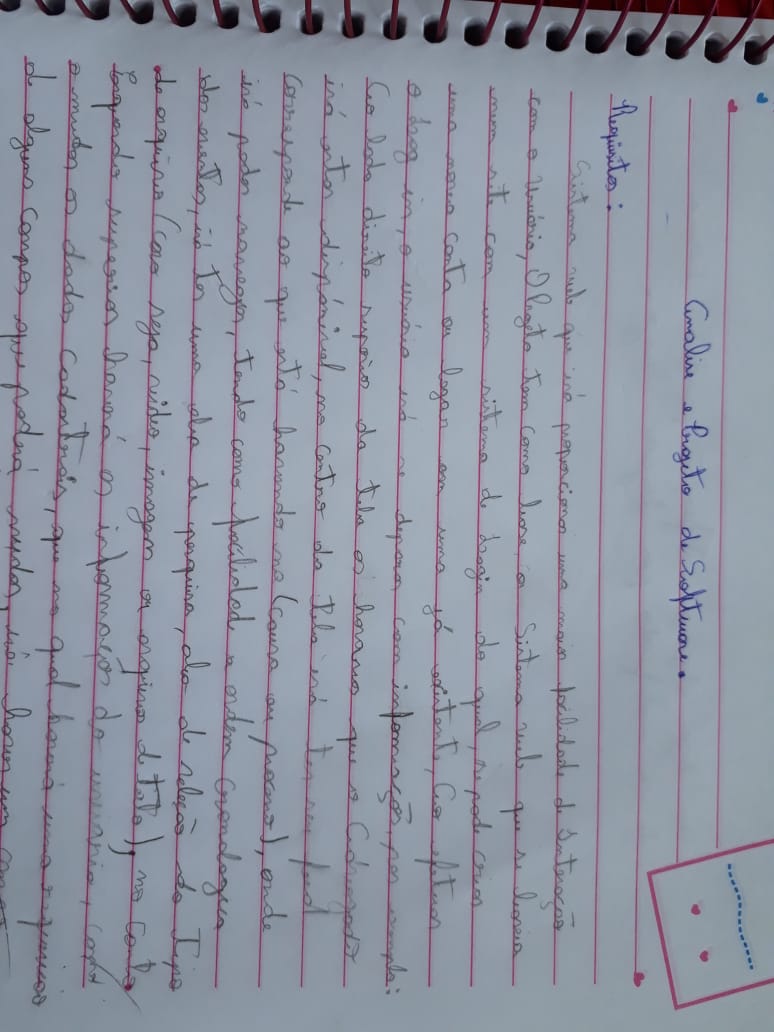 Analise e Projeto de Software.
Requisitos:
Sistema web que irá proporcionar uma maior facilidade de Interação
com o Usuário, O Projeto tem como base, o Sistema web que se baseia
num site com um sistema de login do qual, se pode criar
uma nova conta ou logar em uma já existente, Ao efetuar
o log in, o usuário irá se deparar com informações, por exemplo:
Ao lado direito superior da tela os horarios que o Coordenador
irá estar disponível, no centro da tela irá ter seu feed
correspode ao que está havendo no (curso ou processo), onde
irá poder navegar, tendo como facilidade a ordem Cronologica
do eventos, irá ter uma aba de pesquisa, aba de seleção do Tipo
de arquivo (caso seja, video, imagem ou arquivo de texto), no canto
esquerdo superior haverá as informações do usuario, como
o mudar os dados Cadastrais, que no qual haverá uma requisião
de alguns campos que poderá mudar, irá haver um